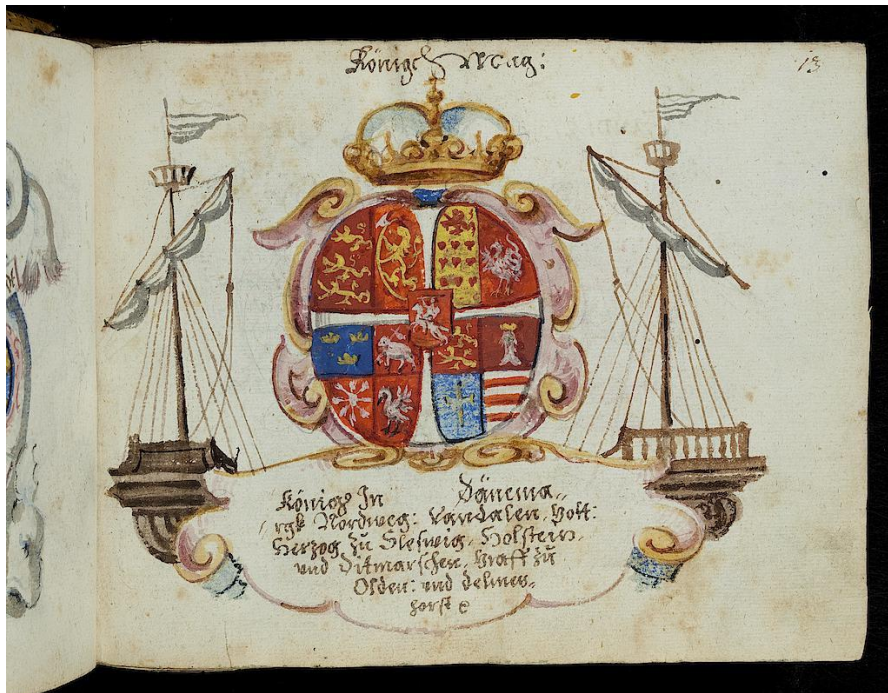 König: Wag:
13
König In Dänema,,
rgk Nordweg: Vandalen, Gott:
Herzog zu Sleswig, Holstein,
und Ditmarschen, Graff zu
Olden: und Delmen,,
horst